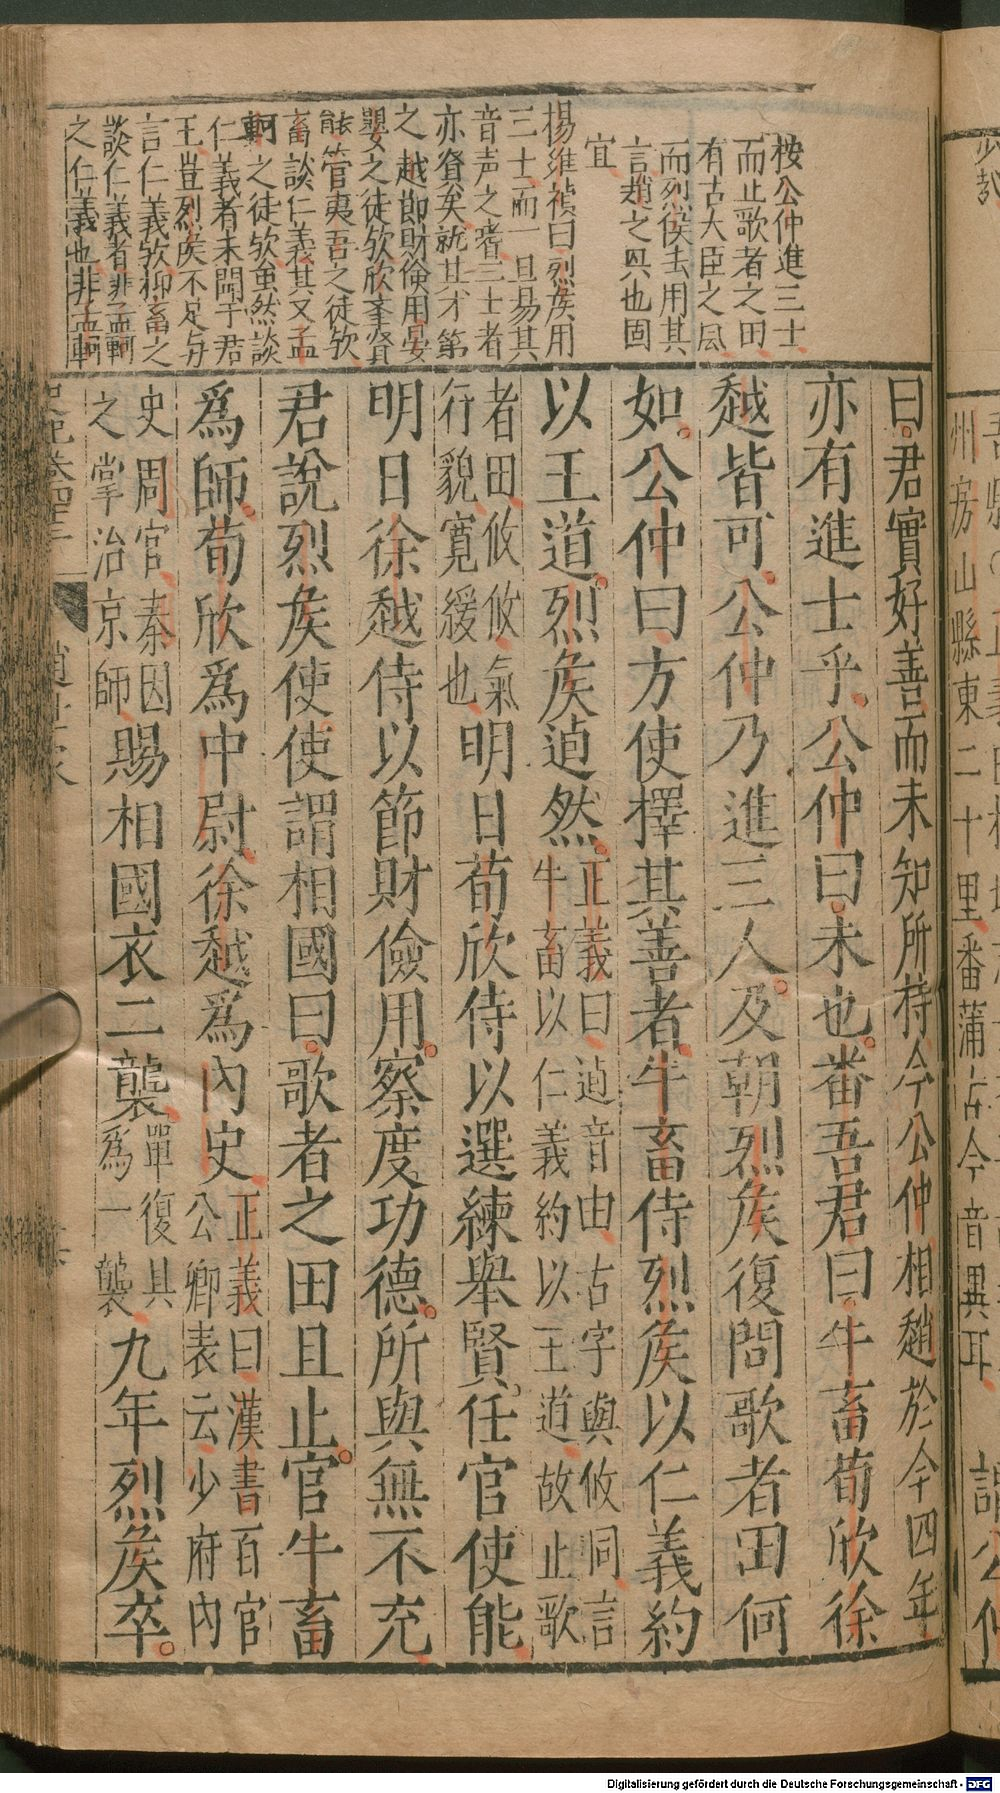 桉公仲進三士
而止歌者之田
有古大臣之風
而烈侯去用其
言趙之興也固
宜
楊維禎曰烈侯用
三士而一旦易其
音声之奢三士者
亦賢矣就其才第
之越即財儉用晏
嬰之徒欤欣舉賢
能管夷吾之徒欤
畜談仁義其又孟
軻之徒欤虽然談
仁義者未聞于君
王豈烈侯不足与
言仁義欤抑畜之
談仁義者非孟軻
之仁義也非孟軻
曰君實好善而未知所持今公仲相趙於今四年
亦有進士乎公仲曰未也番吾君曰牛畜荀欣徐
越皆可公仲乃進三人及朝烈侯復問歌者田何
如公仲曰方使擇其善者牛畜侍烈侯以仁義約
以王道烈侯逌然正義曰逌音由古字與攸同言
牛畜以仁義約以王道故止歌
者田攸攸氣
行貌寬緩也明日荀欣侍以選練舉賢任官使能
明日徐越侍以節財儉用察度功德所與無不充
君說烈侯使使謂相國曰歌者之田且止官牛畜
為師荀欣為中尉徐越為內史正義曰漢書百官
公卿表云少府內
史周官秦因
之掌治京師賜相國衣二襲單復具
為一襲九年烈侯卒
史記卷四十三
趙世家
州房山縣東二十里番蒲古今音異耳
謂公仲
Digitalisierung gefördert durch die Deutsche Forschungsgemeinschaft - DFG